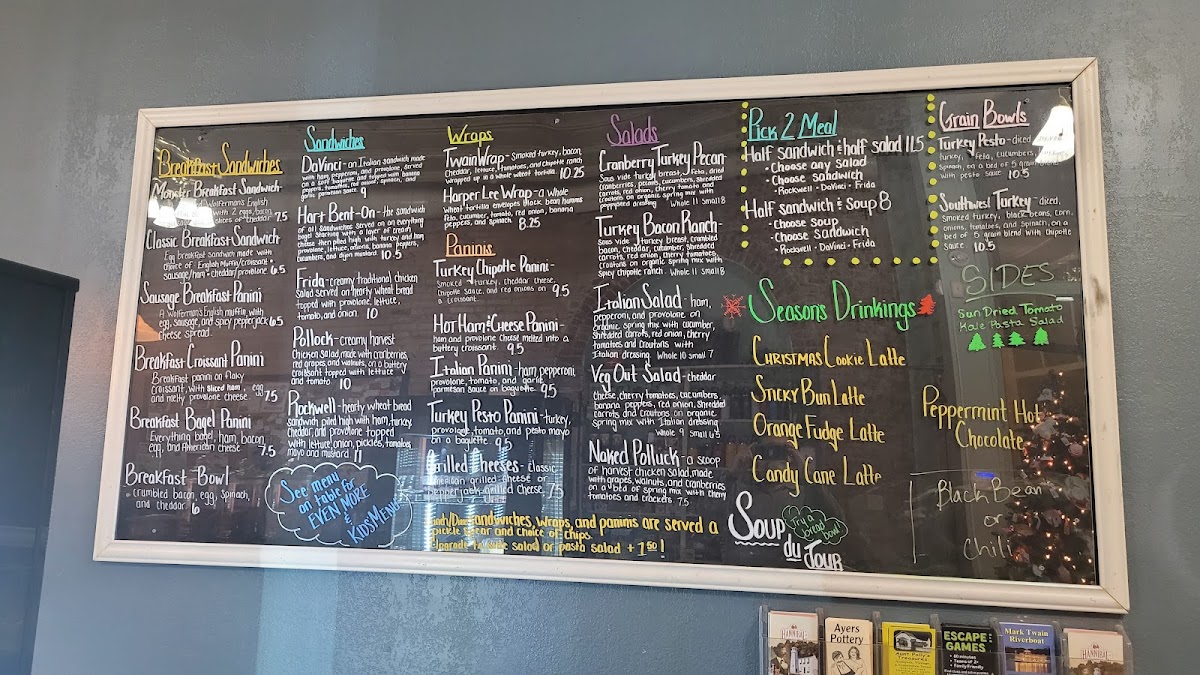 Breakfast Sandwiches
Monster Breakfast Sandwich-
A Wolferman's English
with 2 eggs, bacon,
slices of cheddar 7.5
Classic Breakfast Sandwich-
Egg breakfast sandwich made with
choice of: English Muffin/croissant +
sausage/ham + cheddar/provolone 6.5
Sausage Breakfast Panini
A Wolferman's English muffin, with
egg, sausage, and spicy pepperjack 6.5
cheese spread.
Breakfast Croissant Panini
Breakfast panini on flaky
croissant, with sliced ham, egg
and melty provolone cheese 7.5
Breakfast Bagel Panini
Everything bagel, ham, bacon,
egg, and American cheese 7.5
Breakfast Bowl
crumbled bacon, egg, spinach,
and cheddar. 6
Sandwiches
DaVinci - an Italian sandwich made
with ham, pepperoni, and provolone, served
on a soft baguette and topped with banana
peppers, tomatoes, red onion, spinach, and
garlic parmesan sauce 9
Hart Bent-On - the sandwich
of all sandwiches served on an everything
bagel starting with a layer of cream
cheese then piled high with turkey and ham,
provolone, lettuce, onion, banana peppers,
cucumbers, and dijon mustard 10.5
Frida - creamy traditional chicken
salad served on hearty wheat bread
topped with provolone, lettuce,
tomato, and onion. 10
Pollock - creamy harvest
chicken salad, made with cranberries,
red grapes and walnuts, on a buttery
croissant topped with lettuce
and tomato 10
Rockwell - hearty wheat bread
sandwich piled high with ham, turkey,
cheddar, and provolone topped
with lettuce, onion, pickles, tomatoes,
mayo and mustard 11
See menu
on table for
EVEN MORE
&
KIDS MENU
Wraps
Twain Wrap - Smoked turkey, bacon,
cheddar, lettuce, tomatoes, and chipotle ranch
wrapped up in a whole wheat tortilla 10.5
Harper Lee Wrap - a whole
wheat tortilla envelopes black bean hummus
feta, cucumber, tomato, red onion, banana
peppers, and spinach. 8.25
Paninis
Turkey Chipotle Panini -
Smoked turkey, cheddar cheese,
chipotle sauce, and red onions on
a croissant. 9.5
Hot Ham & Cheese Panini -
ham and provolone cheese melted into a
buttery croissant. 9.5
Italian Panini - ham, pepperoni,
provolone, tomato, and garlic
parmesan sauce on baguette 9.5
Turkey Pesto Panini - turkey,
provolone, tomato, and pesto mayo
on a baguette. 9.5
Grilled Cheeses - classic
American grilled cheese or
pepper jack grilled cheese. 7.5
sandwiches, wraps, and paninis are served a
pickle spear and choice of chips.
Upgrade to side salad or pasta salad + 1.50!
Salads
Cranberry Turkey Pecan-
Sous vide turkey breast, feta, dried
cranberries, pecans, cucumbers, shredded
carrots, red onion, cherry tomato and
croutons on organic spring mix with
poppyseed dressing. Whole 11 small 8
Turkey Bacon Ranch-
Sous vide turkey breast, crumbled
bacon, cheddar, cucumber, shredded
carrots, red onion, cherry tomatoes,
croutons on organic spring mix with
spicy chipotle ranch. Whole 11 small 8
Italian Salad - ham,
pepperoni, and provolone on
organic spring mix with cucumber,
shredded carrots, red onion, cherry
tomatoes and croutons with
Italian dressing. Whole 10 small 7
Veg Out Salad - cheddar
cheese, cherry tomatoes, cucumbers,
banana peppers, red onion, shredded
carrots and croutons on organic
spring mix with Italian dressing
Whole 9 small 6.5
Naked Polluck - a scoop
of harvest chicken salad, made
with grapes, walnuts, and cranberries
on a bed of spring mix with cherry
tomatoes and crackers 7.5
Pick 2 Meal
Half sandwich & half salad 11.5
• Choose any salad
• Choose sandwich
• Rockwell - DaVinci - Frida
Half sandwich & Soup 8
• Choose Soup
• Choose Sandwich
• Rockwell - DaVinci - Frida
Seasons Drinkings
Christmas Cookie Latte
Sticky Bun Latte
Orange Fudge Latte
Candy Cane Latte
Peppermint Hot
Chocolate
Soup
du Jour
Try a
bread
bowl
Black Bean
or
Chili
Grain Bowls
Turkey Pesto - diced
turkey, feta, cucumbers,
spinach, on a bed of 5 grain
with pesto sauce 10.5
Southwest Turkey - diced,
smoked turkey, black beans, corn,
onions, tomatoes, and spinach, on a
bed of 5 grain blend with chipotle
sauce 10.5
SIDES
Sun Dried Tomato
Kale Pasta Salad
HANNIBAL
Ayers
Pottery
Aunt Polly's
Treasures
ESCAPE
GAMES
• 60 minutes
• Teams of 2+
• Family Friendly
Mark Twain
Riverboat
HANNIBAL